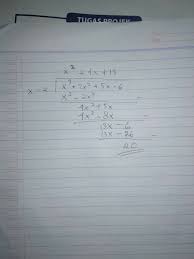 TUGAS PROJEK
x² + 4x + 13
x - 2 x³ + 2x² + 5x - 6
x³ - 2x²
4x² + 5x
4x² - 8x
13x - 6
13x - 26
20